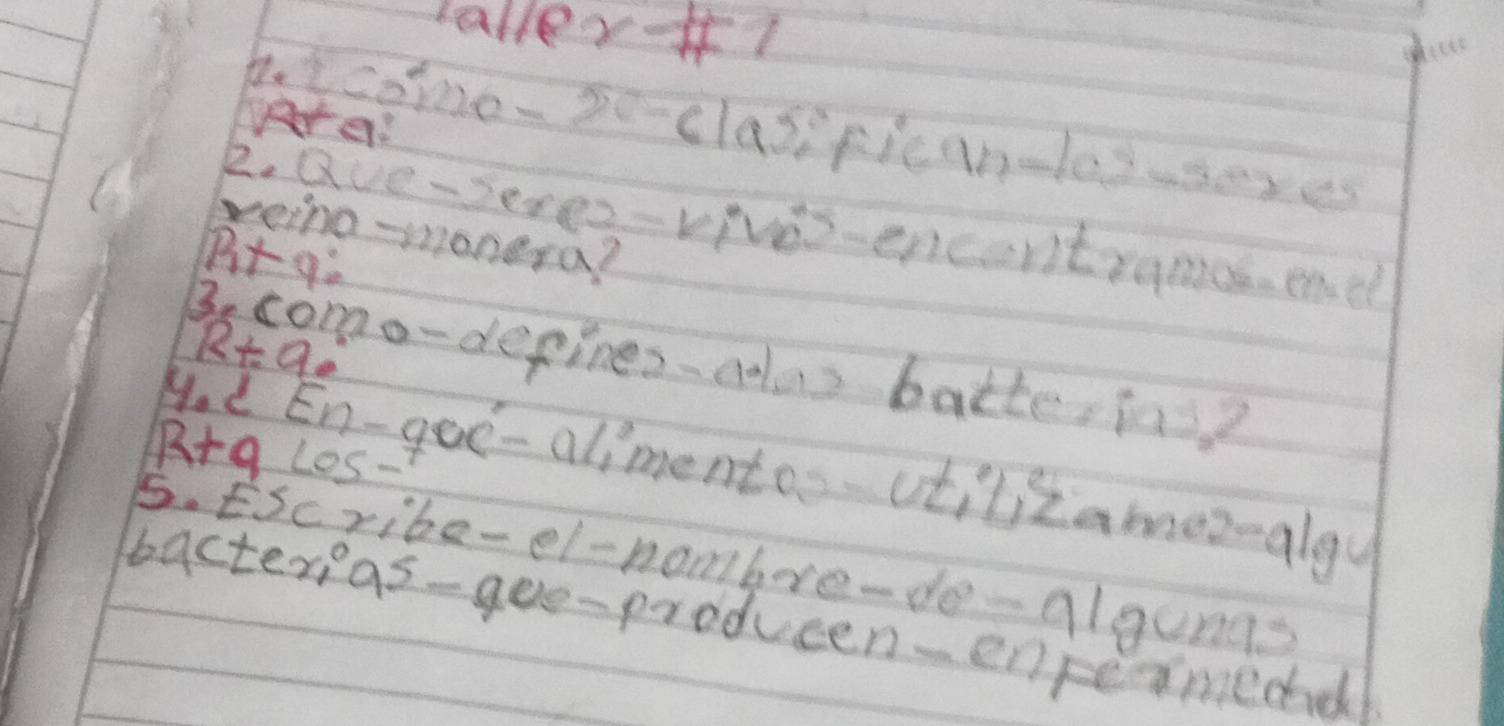 Taller-#1
1. ¿cómo-se-clasifican-los-seres
R+a:
2. Que-seres-vivos-encontramos-en-el
reino-monera?
R+a:
3. como-defines-a-las bacterias?
R+a:
4. ¿ En-qué-alimentos-utilizamos-algu
R+a Los-
5. Escribe-el-nombre-de-algunas
bacterias-que-producen-enfermedad